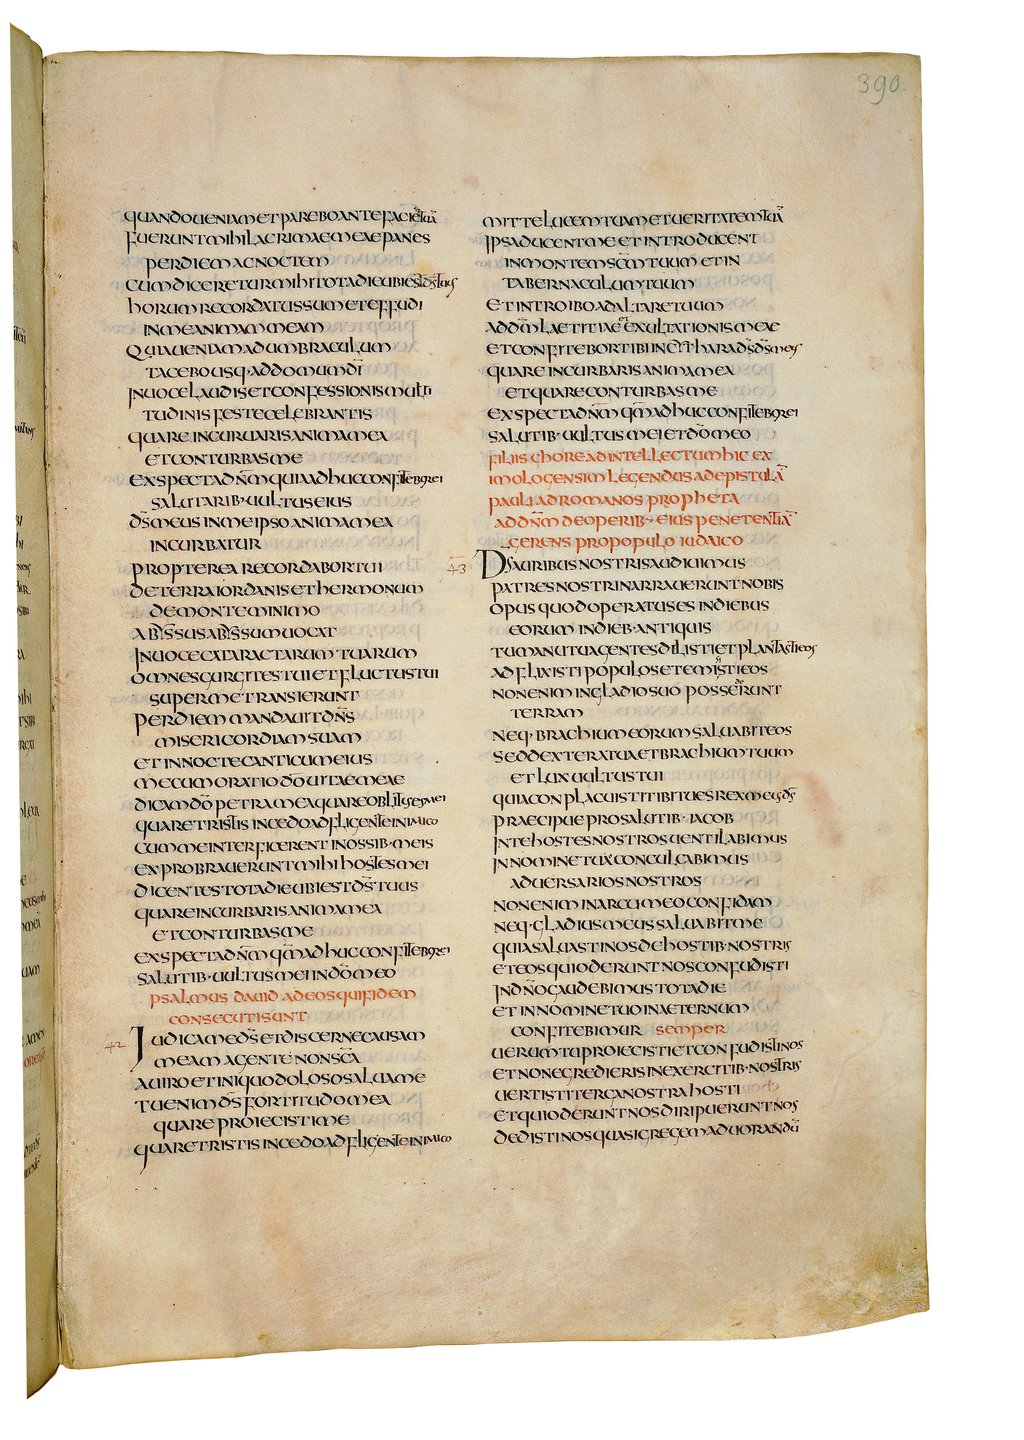 390
QUANDO UENIAM ET PAREBO ANTE FACIĒ TUĀ
FUERUNT MIHI LACRIMAE MEAE PANES
PER DIEM AC NOCTEM
CUM DICERETUR MIHI TOTA DIE UBI EST D̄S TUUS
HORUM RECORDATUS SUM ET EFFUDI
IN ME ANIMAM MEAM
QUIA UENIAM AD UMBRACULUM
TACEBO USQ· AD DOMUM DĪ
IN UOCE LAUDIS ET CONFESSIONIS MULTI
TUDINIS FESTE CELEBRANTIS
QUARE INCURUARIS ANIMA MEA
ET CONTURBAS ME
EXSPECTA DN̄M QUIA ADHUC CONFITEBOR EI
SALUTARIB· UULTUS EIUS
D̄S MEUS IN ME IPSO ANIMA MEA
INCURBATUR
PROPTEREA RECORDABOR TUI
DE TERRA IORDANIS ET HERMONUM
DE MONTE MINIMO
ABISSUS ABISSUM UOCAT
IN UOCE CATARACTARUM TUARUM
OMNES GURGITES TUI ET FLUCTUS TUI
SUPER ME TRANSIERUNT
PER DIEM MANDAUIT DN̄S
MISERICORDIAM SUAM
ET IN NOCTE CANTICUM EIUS
MECUM ORATIO DŌ UITAE MEAE
DICAM DŌ PETRA MEA QUARE OBLITUS ES MEI
QUARE TRISTIS INCEDO ADFLIGENTE INIMICO
CUM ME INTERFICERENT IN OSSIB· MEIS
EXPROBRAUERUNT MIHI HOSTES MEI
DICENTES TOTA DIE UBI EST D̄S TUUS
QUARE INCURBARIS ANIMA MEA
ET CONTURBAS ME
EXSPECTA DN̄M QM̄ ADHUC CONFITEBOR EI
SALUTIB· UULTUS MEI IN DŌ MEO
PSALMUS DAUID AD EOS QUI FIDEM
CONSECUTI SUNT
42 IUDICA ME D̄S ET DISCERNE CAUSAM
MEAM A GENTE NON SC̄A
A UIRO ET INIQUO DOLOSO SALUA ME
TU ENIM D̄S FORTITUDO MEA
QUARE PROIECISTI ME
QUARE TRISTIS INCEDO ADFLIGENTE INIMICO
MITTE LUCEM TUAM ET UERITATEM TUĀ
IPSA DUCENT ME ET INTRODUCENT
IN MONTEM SC̄M TUUM ET IN
TABERNACULUM TUUM
ET INTROIBO AD ALTARE TUUM
AD DM̄ LAETITIAE ET EXULTATIONIS MEAE
ET CONFITEBOR TIBI IN CITHARA D̄S D̄S MEUS
QUARE INCURBARIS ANIMA MEA
ET QUARE CONTURBAS ME
EXSPECTA DN̄M QM̄ ADHUC CONFITEBOR EI
SALUTIB· UULTUS MEI ET DŌ MEO
FILIIS CHORE AD INTELLECTUM HIC EX
IMOLOGENSIM LEGENDUS AD EPISTULĀ
PAULI AD ROMANOS PROPHETA
AD DN̄M DE OPERIB· EIUS PENETENTIĀ
GERENS PRO POPULO IUDAICO
43 DS AURIBUS NOSTRIS AUDIUIMUS
PATRES NOSTRI NARRAUERUNT NOBIS
OPUS QUOD OPERATUS ES IN DIEBUS
EORUM IN DIEB· ANTIQUIS
TU MANU TUA GENTES DELISTI ET PLANTASTI EOS
ADFLIXISTI POPULOS ET EMISISTI EOS
NON ENIM IN GLADIO SUO POSSEDERUNT
TERRAM
NEQ· BRACHIUM EORUM SALUABIT EOS
SED DEXTERA TUA ET BRACHIUM TUUM
ET LUX UULTUS TUI
QUIA CONPLACUISTI TIBI TU ES REX MEUS D̄S
PRAECIPUE PRO SALUTIB· IACOB
IN TE HOSTES NOSTROS UENTILABIMUS
IN NOMINE TUO CONCULCABIMUS
ADUERSARIOS NOSTROS
NON ENIM IN ARCU MEO CONFIDAM
NEQ· GLADIUS MEUS SALUABIT ME
QUIA SALUASTI NOS DE HOSTIB· NOSTRIS
ET EOS QUI ODERUNT NOS CONFUDISTI
IN DN̄O GAUDEBIMUS TOTA DIE
ET IN NOMINE TUO IN AETERNUM
CONFITEBIMUR SEMPER
UERUM TU PROIECISTI ET CONFUDISTI NOS
ET NON EGREDIERIS IN EXERCITIB· NOSTRIS
UERTISTI TERGA NOSTRA HOSTI
ET QUI ODERUNT NOS DIRIPUERUNT NOS
DEDISTI NOS QUASI GREGEM AD UORANDŪ